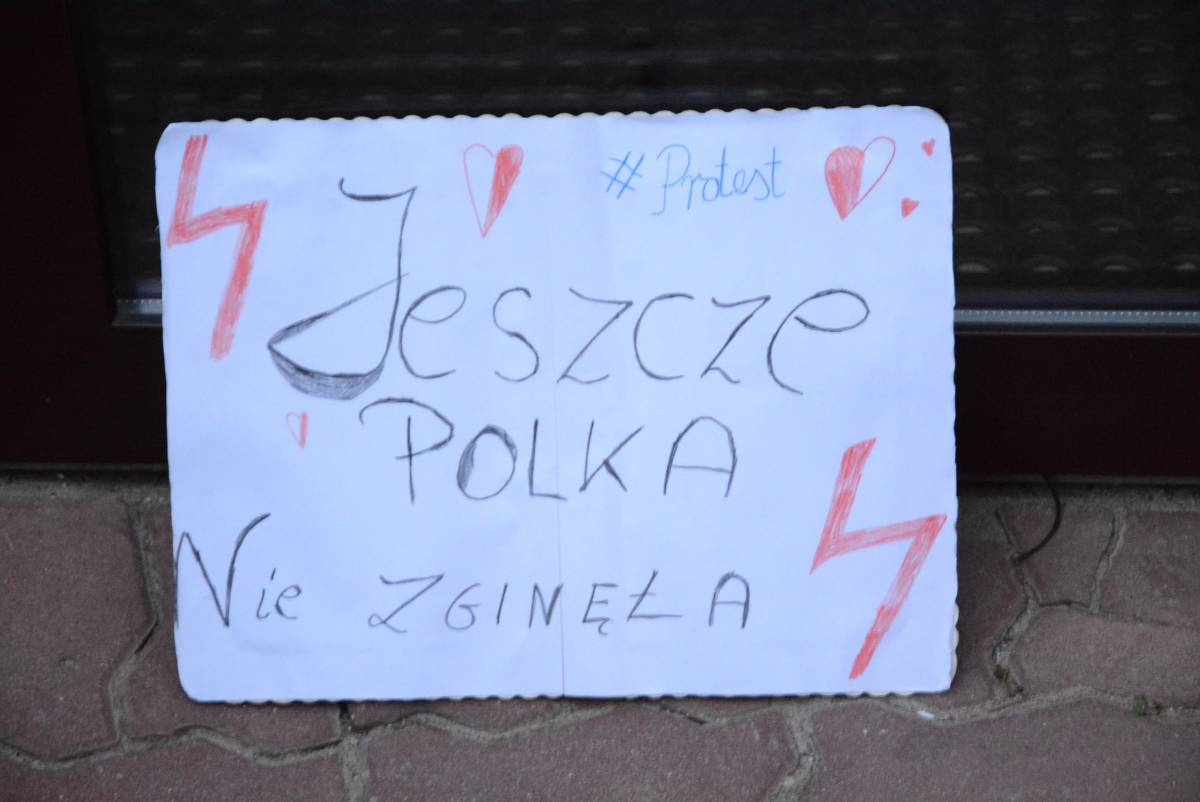 # Protest
Jeszcze
POLKA
Nie ZGINĘŁA